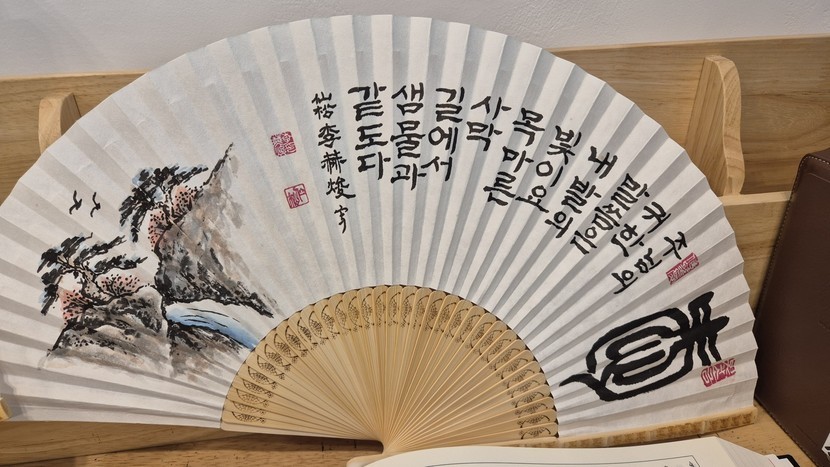 주님의
귀한
말씀은
내 발의
빛이요
목마른
사막
길에서
샘물과
같도다
仙松 李赫焌